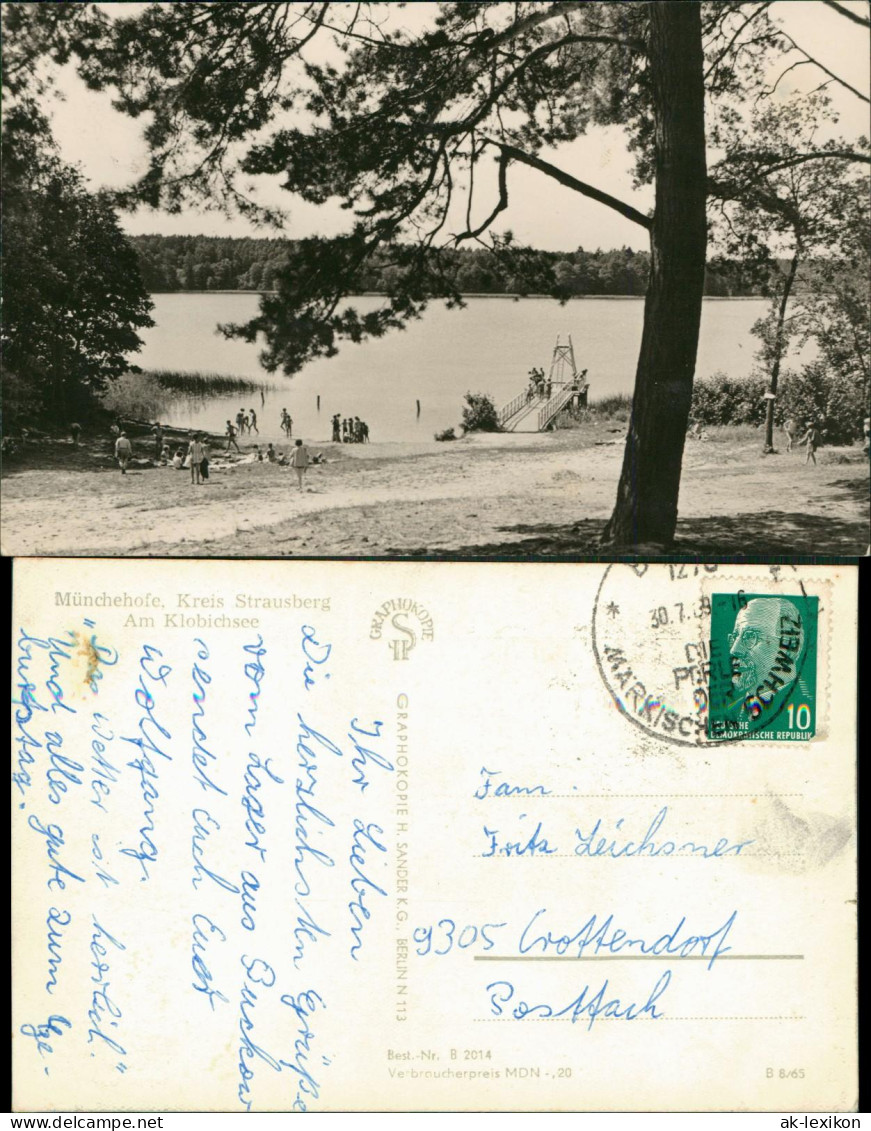 Münchehofe, Kreis Strausberg
Am Klobichsee
Ihr Lieben
Die herzlichsten Grüße
vom Lager aus Buckow
sendet Euch Euer
Wolfgang.
"Das Wetter ist herrlich."
Und alles gute zum Ge-
burtstag.
GRAPHOKOPIE
GRAPHOKOPIE H. SANDER K.G., BERLIN N 113
30.7.69-16
DIE
PERLE
DER
MÄRKISCHEN SCHWEIZ
10
DEUTSCHE
DEMOKRATISCHE REPUBLIK
Fam.
Fritz Leichsner
9305 Crottendorf
Postfach
Best.-Nr. B 2014
Verbraucherpreis MDN -,20
B 8/65
ak-lexikon